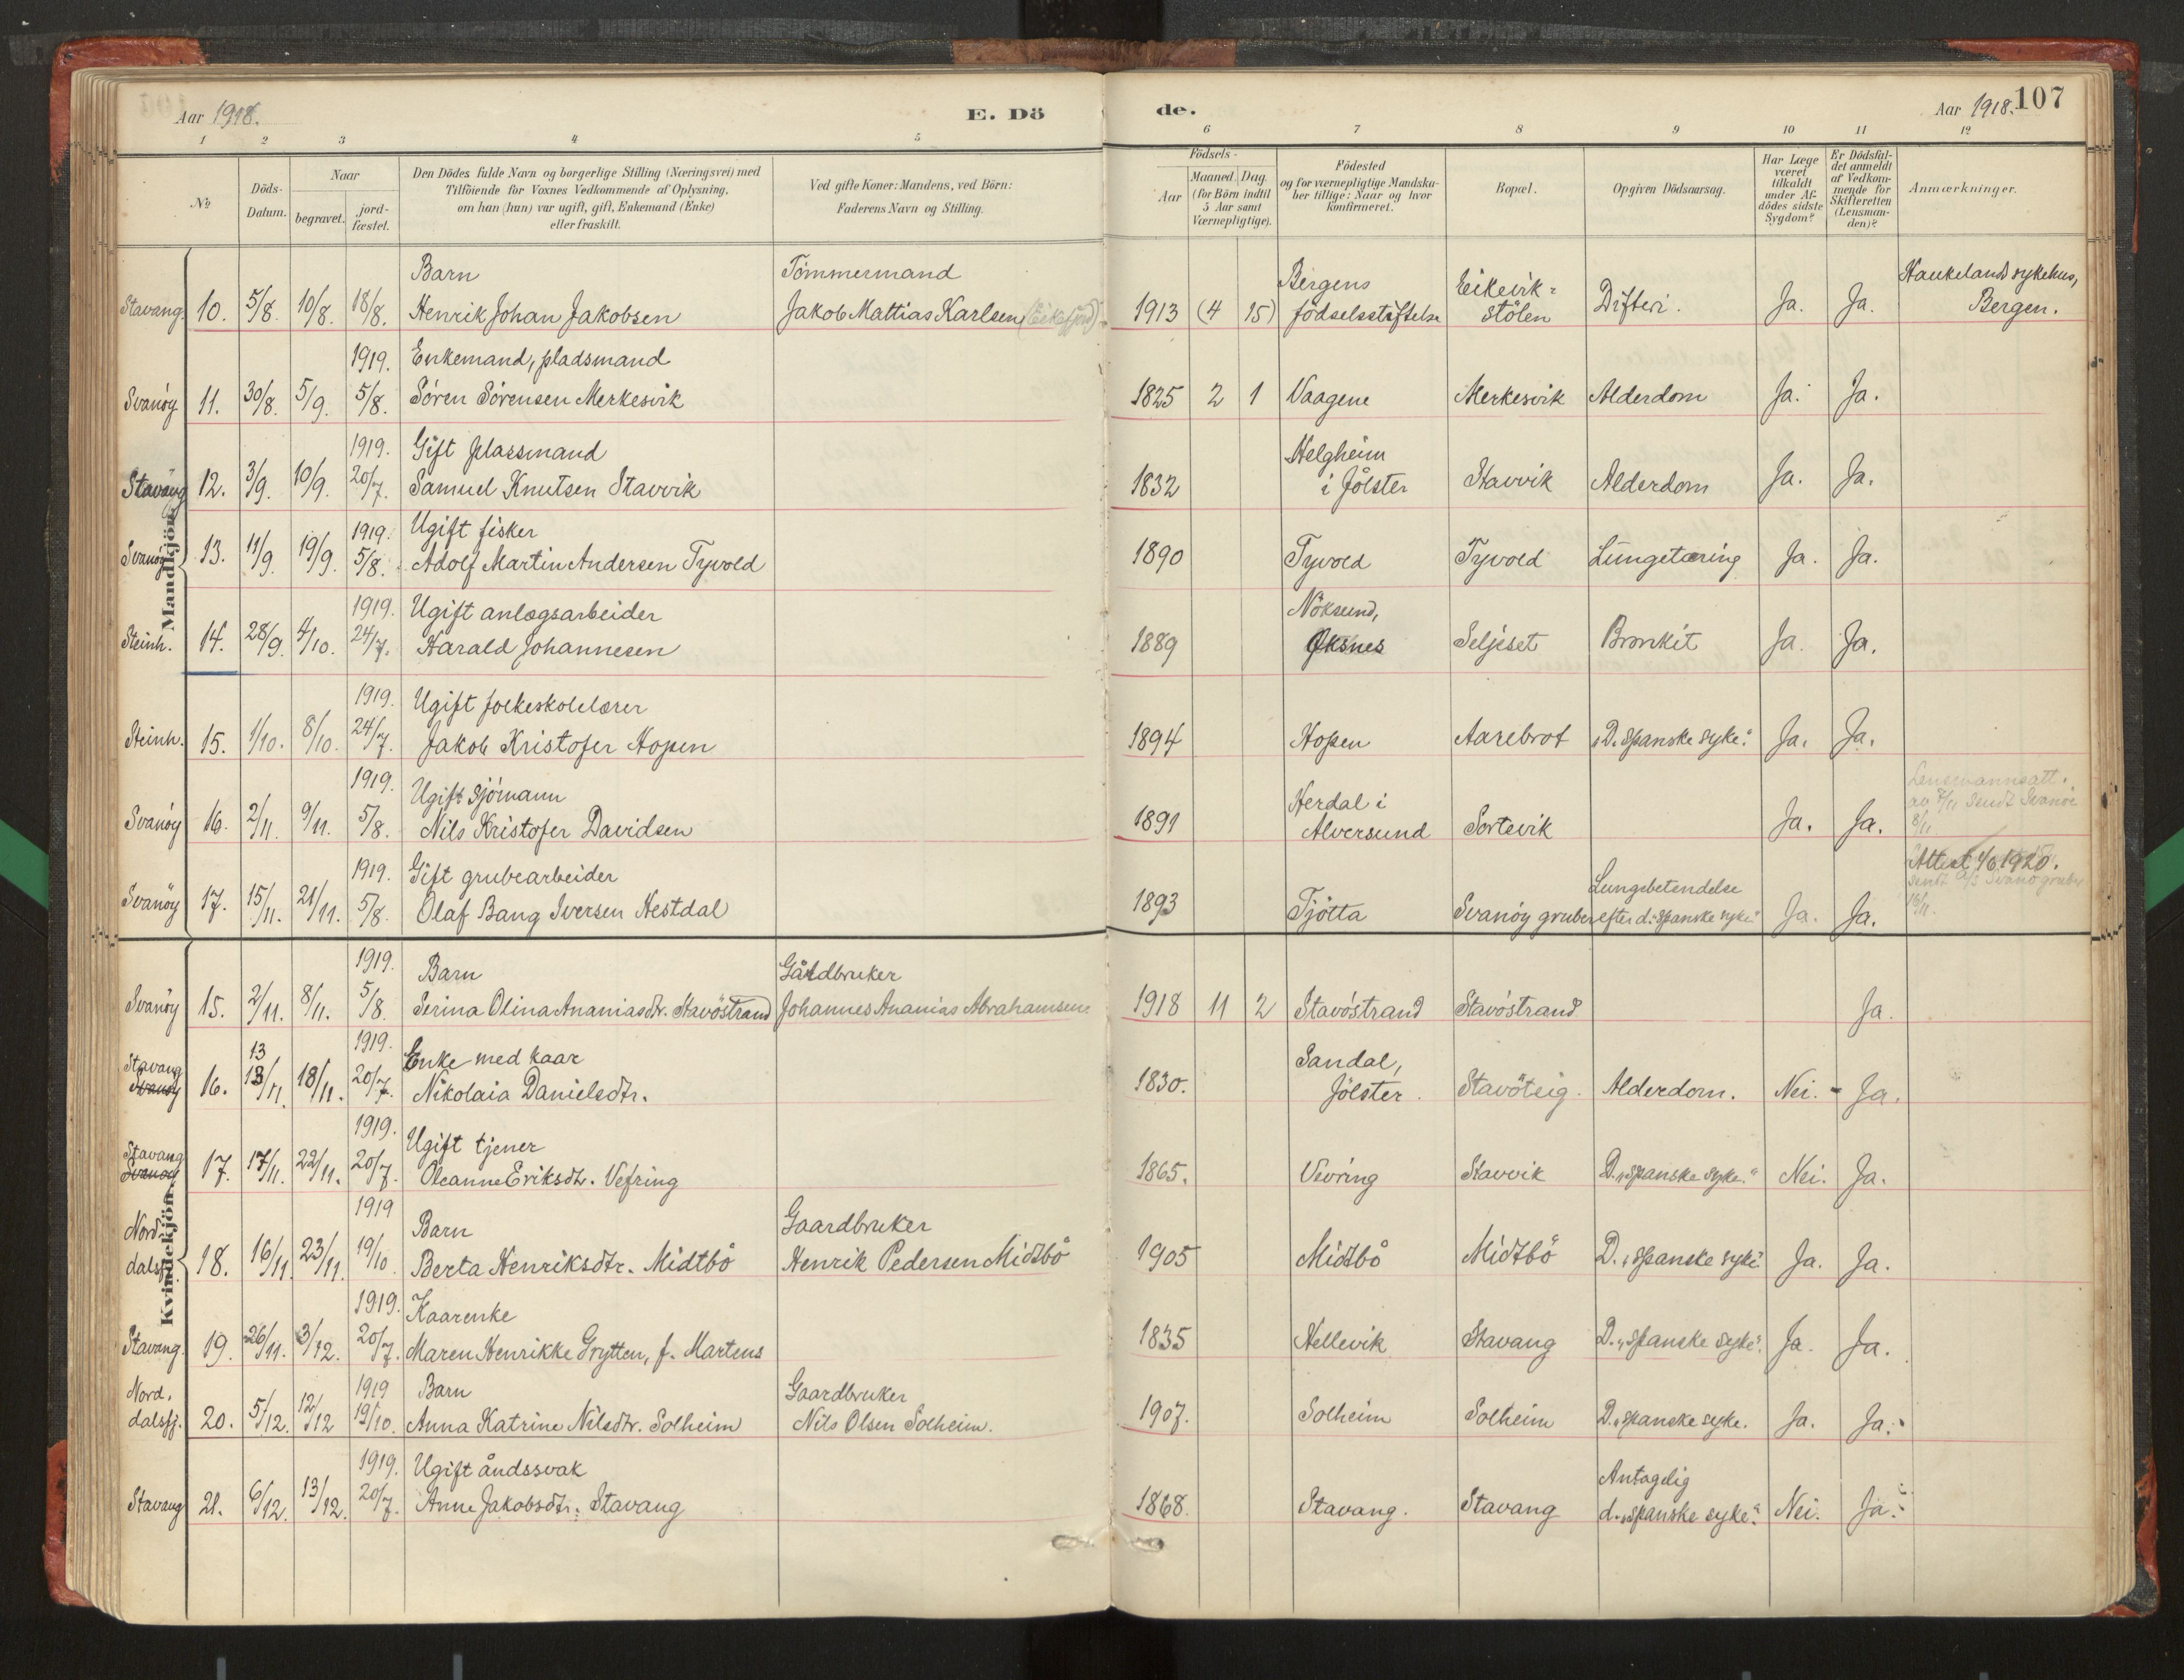 Aar 1918.
E. Dö
de.
Aar 1918.
107
1 2 3 4 5 6 7 8 9 10 11 12
№
Döds-
Datum.
Naar
begravet.
jord-
fæstet.
Den Dödes fulde Navn og borgerlige Stilling (Næringsvei) med
Tilföiende for Voxnes Vedkommende af Oplysning,
om han (hun) var ugift, gift, Enkemand (Enke)
eller fraskilt.
Ved gifte Koner: Mandens, ved Börn:
Faderens Navn og Stilling.
Födsels-
Aar
Maaned. Dag.
(for Börn indtil
5 Aar samt
Værnepligtige).
Födested
og for værnepligtige Mandska-
ber tillige: Naar og hvor
konfirmeret.
Bopæl.
Opgiven Dödsaarsag.
Har Læge
været
tilkaldt
under Af-
dödes sidste
Sygdom?
Er Dödsfal-
det anmeldt
af Vedkom-
mende for
Skifteretten
(Lensman-
den)?
Anmærkninger.
Mandkjön.
Barn Tömmermand Bergens Eikevik- Haukeland sykehus,
Stavang. 10. 5/8. 10/8. 18/8. Henrik Johan Jakobsen Jakob Mattias Karlsen (Eikefjord) 1913 (4 15) födselsstiftelse stölen Difteri. Ja. Ja. Bergen.
1919. Enkemand, pladsmand
Svanöy 11. 30/8. 5/9. 5/8. Sören Sörensen Merkesvik 1825 2 1 Vaagene Merkesvik Alderdom Ja. Ja.
1919. Gift plassmand Helgheim
Stavang 12. 3/9. 10/9. 20/7. Samuel Knutsen Stavvik 1832 i Jölster Stavvik Alderdom Ja. Ja.
1919. Ugift fisker
Svanöy 13. 11/9. 19/9. 5/8. Adolf Martin Andersen Tyvold 1890 Tyvold Tyvold Lungetæring Ja. Ja.
1919. Ugift anlægsarbeider Nöksund,
Steinh. 14. 28/9. 4/10. 24/7. Harald Johannesen 1889 Öksnes Seljeset Bronkit Ja. Ja.
1919. Ugift folkeskolelærer
Steinh. 15. 1/10. 8/10. 24/7. Jakob Kristofer Hopen 1894 Hopen Aarebrot „D. spanske syke“. Ja. Ja.
1919. Ugift sjömann Herdal i Lensmannsatt.
av 7/11 sendt Svanöe
Svanöy 16. 2/11. 9/11. 5/8. Nils Kristofer Davidsen 1891 Alversund Sortevik Ja. Ja. 8/11
1919. Gift grubearbeider Lungebetendelse Attest 4/6 1920.
sendt a/s Svanö gruber
Svanöy 17. 15/11. 21/11. 5/8. Olaf Bang Iversen Hestdal 1893 Tjötta Svanöy gruber efter d. „spanske syke“ Ja. Ja. 16/11.
Kvindekjön.
1919. Barn Gårdbruker
Svanöy 15. 2/11. 8/11. 5/8. Serina Olina Ananiasdtr. Stavöstrand Johannes Ananias Abrahamsen 1918 11 2 Stavöstrand Stavöstrand Ja.
Stavang 13 1919. Enke med kaar Sandal,
Svanöy 16. 13/11. 18/11. 20/7. Nikolaia Danielsdtr. 1830. Jölster. Stavöteig. Alderdom. Nei. - Ja.
Stavang 1919. Ugift tjener
Svanöy 17. 17/11. 22/11. 20/7. Oleanne Eriksdtr. Vefring 1865. Vevring Stavvik D. „spanske syke.“ Nei. Ja.
Nord- 1919 Barn Gaardbruker
dalsfj. 18. 16/11. 23/11. 19/10 Berta Henriksdtr. Midtbö Henrik Pedersen Midtbö 1905 Midtbö Midtbö D. „spanske syke“ Ja. Ja.
1919. Kaarenke
Stavang. 19. 26/11. 3/12. 20/7. Maren Henrikke Grytten, f. Martens 1835 Hellevik Stavang D. „spanske syke“. Ja. Ja.
Nord. 1919 Barn Gaardbruker
dalsfj. 20. 5/12. 12/12 19/10. Anna Katrine Nilsdtr. Solheim Nils Olsen Solheim. 1907. Solheim Solheim D. „spanske syke. Ja. Ja.
1919. Ugift åndssvak Antagelig
Stavang 21. 6/12. 13/12. 20/7. Anne Jakobsdtr. Stavang 1868. Stavang. Stavang d. „spanske syke“. Nei. Ja.